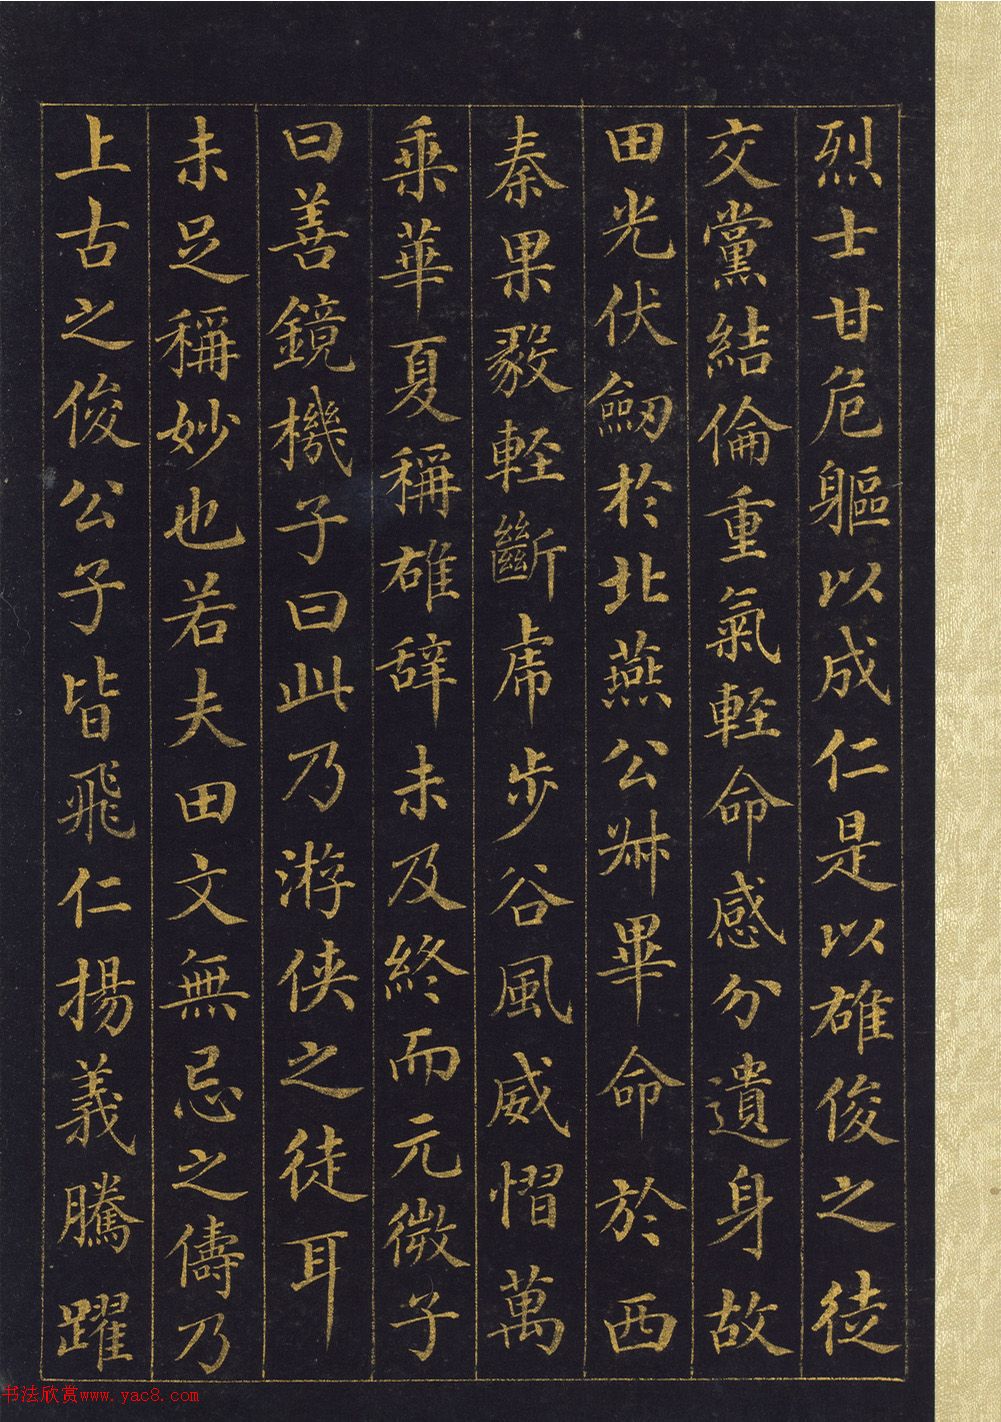 烈士甘危軀以成仁是以雄俊之徒
交黨結倫重氣輕命感分遺身故
田光伏劒於北燕公叔畢命於西
秦果毅輕斷虎步谷風威慴萬
乘華夏稱雄辭未及終而元微子
曰善鏡機子曰此乃游俠之徒耳
未足稱妙也若夫田文無忌之儔乃
上古之俊公子皆飛仁揚義騰躍
书法欣赏www.yac8.com